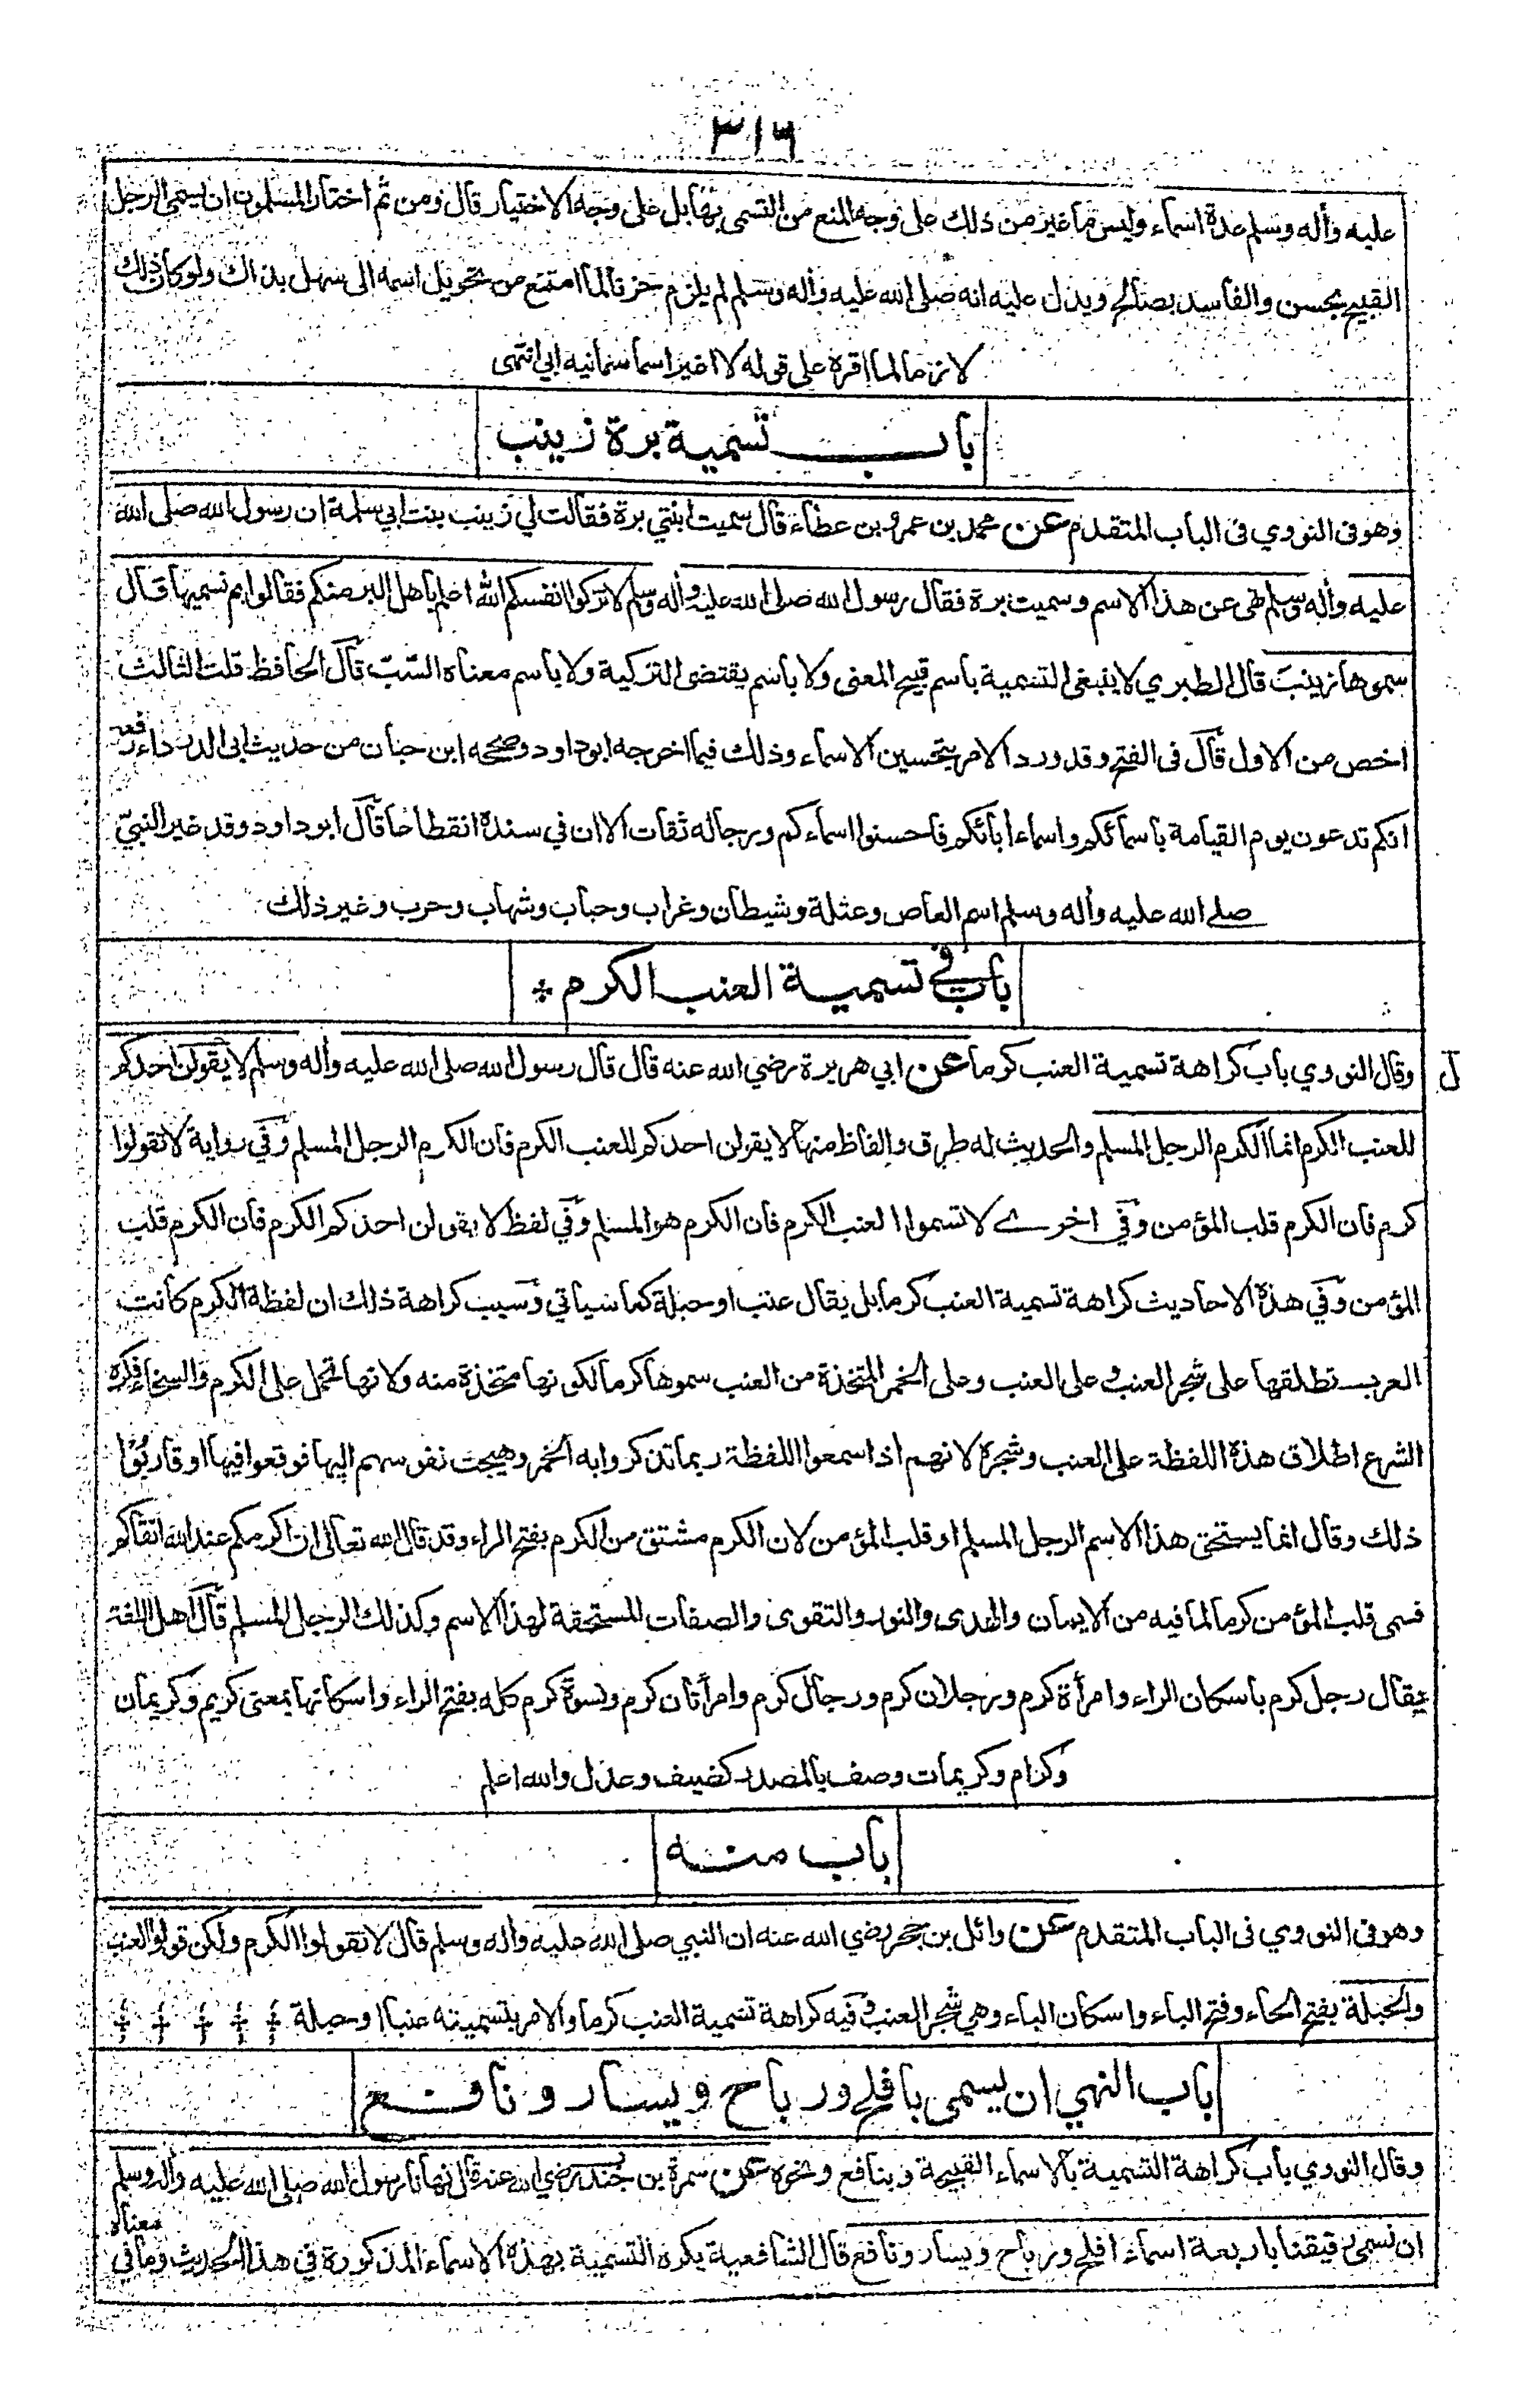 ٣١٦
عليه وأله وسلم عدة اسماء وليس ما غير من ذلك على وجه المنع من التسمى بها بل على وجه الاختيار قال ومن ثم اختار المسلمون ان يسمى الرجل
القبيح بحسن والفاسد بصالح ويدل عليه انه صلى الله عليه وأله وسلم لم يلزم حزنا لما امتنع من تحويل اسمه الى سهل بذاك ولو كان ذلك
لازما لما اقره على قوله لا اغير اسما سمانيه ابي انتهى
باب تسمية برة زينب
وهو فى النووي فى الباب المتقدم عن محمد بن عمرو بن عطاء قال سميت ابنتي برة فقالت لي زينب بنت ابي سلمة ان رسول الله صلى الله
عليه وأله وسلم نهى عن هذا الاسم وسميت برة فقال رسول الله صلى الله عليه وأله وسلم لا تزكوا انفسكم الله اعلم باهل البر منكم فقالوا بم نسميها قال
سموها زينب قال الطبري لا ينبغى التسمية باسم قبيح المعنى ولا باسم يقتضى التزكية ولا باسم معناه السب قال الحافظ قلت الثالث
اخص من الاول قال فى الفتح وقد ورد الامر بتحسين الاسماء وذلك فيما اخرجه ابوداود وصححه ابن حبان من حديث ابى الدرداء رفعه
انكم تدعون يوم القيامة باسمائكم واسماء أبائكم فاحسنوا اسماءكم ورجاله ثقات الا ان في سنده انقطاعا قال ابوداود وقد غير النبي
صلے الله عليه وأله وسلم اسم العاص وعتلة وشيطان وغراب وحباب وشهاب وحرب وغير ذلك
باب في تسمية العنب الكرم *
وقال النووي باب كراهة تسمية العنب كرما عن ابي هريرة رضي الله عنه قال قال رسول الله صلى الله عليه وأله وسلم لا يقولن احدكم
للعنب الكرم انما الكرم الرجل المسلم والحديث له طرق والفاظ منها لا يقولن احدكم للعنب الكرم فان الكرم الرجل المسلم وفي رواية لا تقولوا
كرم فان الكرم قلب المؤمن وفي اخرے لا تسموا العنب الكرم فان الكرم هو المسلم وفي لفظ لا يقولن احدكم الكرم فان الكرم قلب
المؤمن وفي هذه الاحاديث كراهة تسمية العنب كرما بل يقال عنب او حبلة كما سياتي وسبب كراهة ذلك ان لفظة الكرم كانت
العرب تطلقها على شجر العنب وعلى العنب وعلى الخمر المتخذة من العنب سموها كرما لكونها متخذة منه ولانها تحمل على الكرم والسخاء فكره
الشرع اطلاق هذه اللفظة على العنب وشجره لانهم اذا سمعوا اللفظة ربما تذكروا به الخمر وهيجت نفوسهم اليها فوقعوا فيها او قاربوا
ذلك وقال انما يستحق هذا الاسم الرجل المسلم او قلب المؤمن لان الكرم مشتق من الكرم بفتح الراء وقد قال الله تعالى ان اكرمكم عند الله اتقاكم
فسمى قلب المؤمن كرما لما فيه من الايمان والهدى والنور والتقوى والصفات المستحقة لهذا الاسم وكذلك الرجل المسلم قال اهل اللغة
يقال رجل كرم باسكان الراء وامرأة كرم ورجلان كرم ورجال كرم وامرأتان كرم ونسوة كرم كله بفتح الراء واسكانها بمعنى كريم وكريمان
وكرام وكريمات وصف بالمصدر كضيف وعدل والله اعلم
باب منه
وهو فى النووي فى الباب المتقدم عن وائل بن حجر رضي الله عنه ان النبي صلى الله عليه وأله وسلم قال لا تقولوا الكرم ولكن قولوا العنب
والحبلة بفتح الحاء وفتح الباء واسكان الباء وهي شجر العنب وفيه كراهة تسمية العنب كرما والامر بتسميته عنبا او حبلة
باب النهي ان يسمى بافلح ورباح ويسار ونافع
وقال النووي باب كراهة التسمية بالاسماء القبيحة وبنافع ونحوه عن سمرة بن جندب رضي الله عنه قال نهانا رسول الله صلى الله عليه وأله وسلم
ان نسمي رقيقنا باربعة اسماء افلح ورباح ويسار ونافع قال الشافعية يكره التسمية بهذه الاسماء المذكورة في هذا الحديث وما في معناه